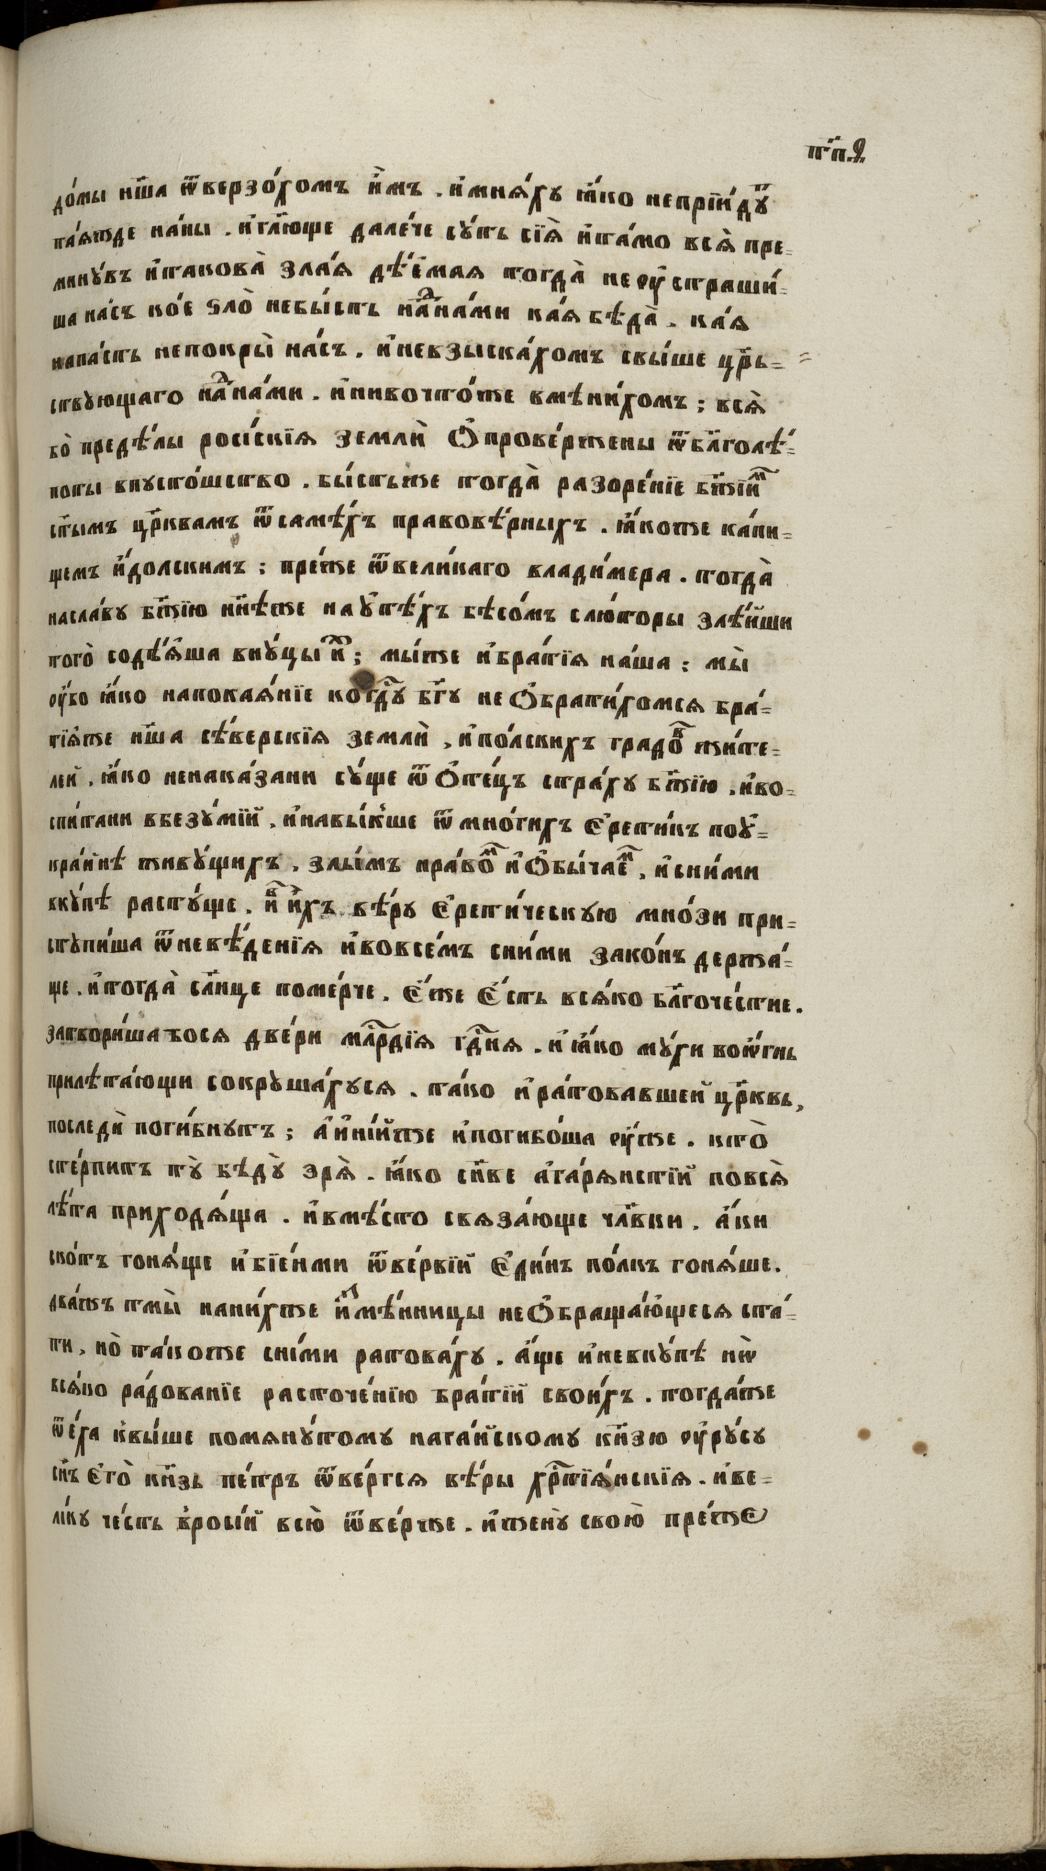 рп҃в
до́мы нш҃а ѿверзо́хомъ и҆̀мъ . и҆мня́ху ꙗ҆́ко непрїи́дꙋтъ
та́яжде на́ны . и҆гл҃юще дале́че су́ть сїя̀ и҆та́мо вся̀ пре=
мину́въ и҆такова̀ зла́я дѣ́емая тогда̀ не ᲂу҆страши́=
ша на́съ ко́е ѕло̀ небы́сть наⷣна́ми ка́я бѣда̀ . ка́я
напа́сть непокры̀ на́съ . и҆невзыска́хомъ свы́ше цр҃ь=
ствующаго наⷣна́ми . и҆нивочто́же вмѣни́хомъ ; вся̀
бо̀ предѣ́лы росі́скїя землѝ Ѻ҆прове́ржены ѿбл҃голѣ́=
поты впусто́шство . бы́стьже тогда̀ разоре́нїе бж҃їиⷨ
ст҃ымъ цр҃квамъ ѿсамѣ́хъ правовѣ́рныхъ . ꙗ҆́коже ка́пи=
щемъ и҆́долскимъ ; пре́же ѿвели́каго влади́мера . тогда̀
наслаᲂву бж҃їю нн҃ѣже на у҆тѣ́хъ бѣсо́мъ слю́торы злѣ́йши
того̀ содѣ́яша вну́цы и҆ⷯ ; мы́же и҆бра́тїя на́ша ; мы̀
ᲂу҆́бо ꙗ҆́ко напокая́нїе когⷣу бг҃у не Ѻ҆брати́хомся бра́=
тїяже нш҃а сѣ́верскїя землѝ , и҆по́лскихъ градоⷡ жи́те=
лей , ꙗ҆́ко ненака́зани су́ще ѿ Ѻ҆те́цъ стра́ху бж҃їю , и҆во=
спи́тани вбезу́мїй , и҆навы́кше ѿ мно́гихъ Е҆рети́къ поу҆=
кра́йнѣ живу́щихъ , злы́мъ нра́воⷨ и҆Ѻ҆бы́чаеⷨ , и҆сни́ми
вку́пѣ расту́ще , и҆ⷡ и҆́хъ вѣ́ру Е҆рети́ческую мно́зи при=
ступи́ша ѿневѣ́денїя и҆вовсе́мъ сни́ми зако́нъ держа́=
ще . и҆тогда̀ сл҃нце поме́рче . Е҆́же Е҆́сть вся́ко бл҃гоче́стие .
затвори́шаѣося две́ри млⷭ҇рдїя гдⷭ҇ня . и҆ ꙗ҆́ко му́хи воѻ҆́гнь
прилѣта́ющи сокруша́хуся . та́ко и҆ра́товавшей цр҃квь ,
последѝ поги́бнутъ ; а҆и҆ні́йже и҆погибо́ша ᲂу҆́же . кто̀
сте́рпитъ ту̀ бѣду̀ зря̀ . ꙗ҆́ко сн҃ве а҆га́рянстїй повся̀
лѣ́та приходя́ща . и҆вмѣ́сто связа́юще чл҃вки . а҆́ки
ско́тъ гоня́ще и҆бїе́ніи ѿве́рвїй Е҆ди́нъ по́лкъ гоня́ше .
два́жъ тмы̀ нани́хже и҆зⷨмѣ́нницы неѺ҆браща́ющеся ста́=
ти , но̀ та́коже сни́ми ратова́ху . а҆́ще и҆невку́пѣ нѡ҆̀
вся́ко ра́дованїе расточе́нїю бра́тїй свои́хъ . тогда́же
ѿе́ха к҆вы́ше помяну́тому нага́йскому кн҃зю ᲂу҆ру́су
сн҃ъ Е҆го̀ кн҃зь пе́тръ ѿве́ргся вѣ́ры хрⷭ҇тїя́нскїя . и҆ве=
ли́ку че́сть в҆росі́й всю̀ ѿве́рже . и҆жену̀ свою̀ пре́же